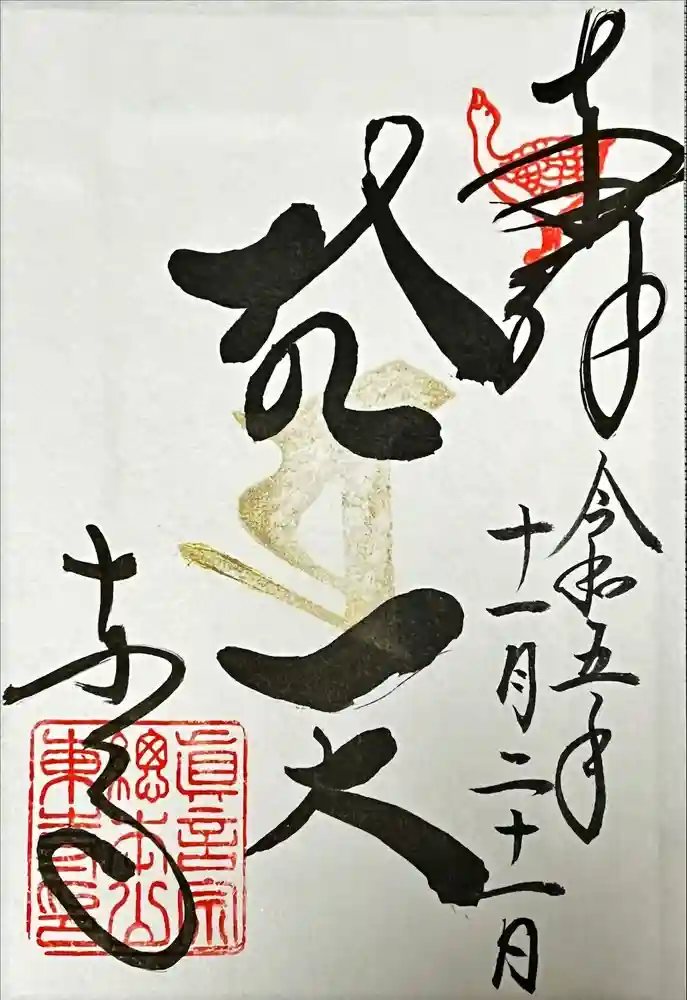 奉拝
令和五年
十一月二十一日
梵天
東寺
眞言宗
總本山
東寺印